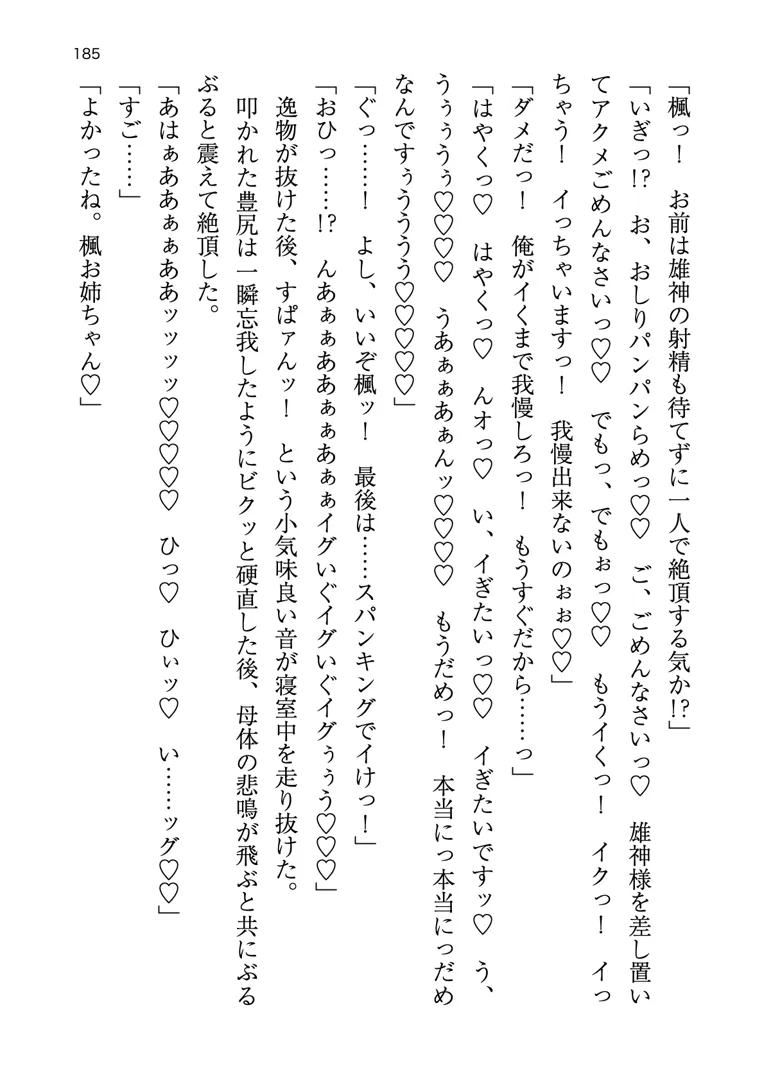 185
「楓っ！　お前は雄神の射精も待てずに一人で絶頂する気か!?」
「いぎっ!?　お、おしりパンパンらめっ♡♡　ご、ごめんなさいっ♡　雄神様を差し置い
てアクメごめんなさいっ♡♡　でもっ、でもぉっ♡♡　もうイくっ！　イクっ！　イっ
ちゃう！　イっちゃいますっ！　我慢出来ないのぉぉ♡♡」
「ダメだっ！　俺がイくまで我慢しろっ！　もうすぐだから……っ」
「はやくっ♡　はやくっ♡　んオっ♡　い、イぎたいっ♡♡　イぎたいですッ♡　う、
うぅぅうぅ♡♡♡♡　うあぁぁあぁんッ♡♡♡♡　もうだめっ！　本当にっ本当にっだめ
なんですぅうううう♡♡♡♡♡」
「ぐっ……！　よし、いいぞ楓ッ！　最後は……スパンキングでイけっ！」
「おひっ……!?　んあぁぁああぁぁあぁぁイグいぐイグいぐイグぅぅう♡♡♡」
逸物が抜けた後、すぱァんッ！　という小気味良い音が寝室中を走り抜けた。
叩かれた豊尻は一瞬忘我したようにビクッと硬直した後、母体の悲鳴が飛ぶと共にぶる
ぶると震えて絶頂した。
「あはぁああぁぁああッッッッ♡♡♡♡♡　ひっ♡　ひぃッ♡　い……ッグ♡♡」
「すご……」
「よかったね。楓お姉ちゃん♡」